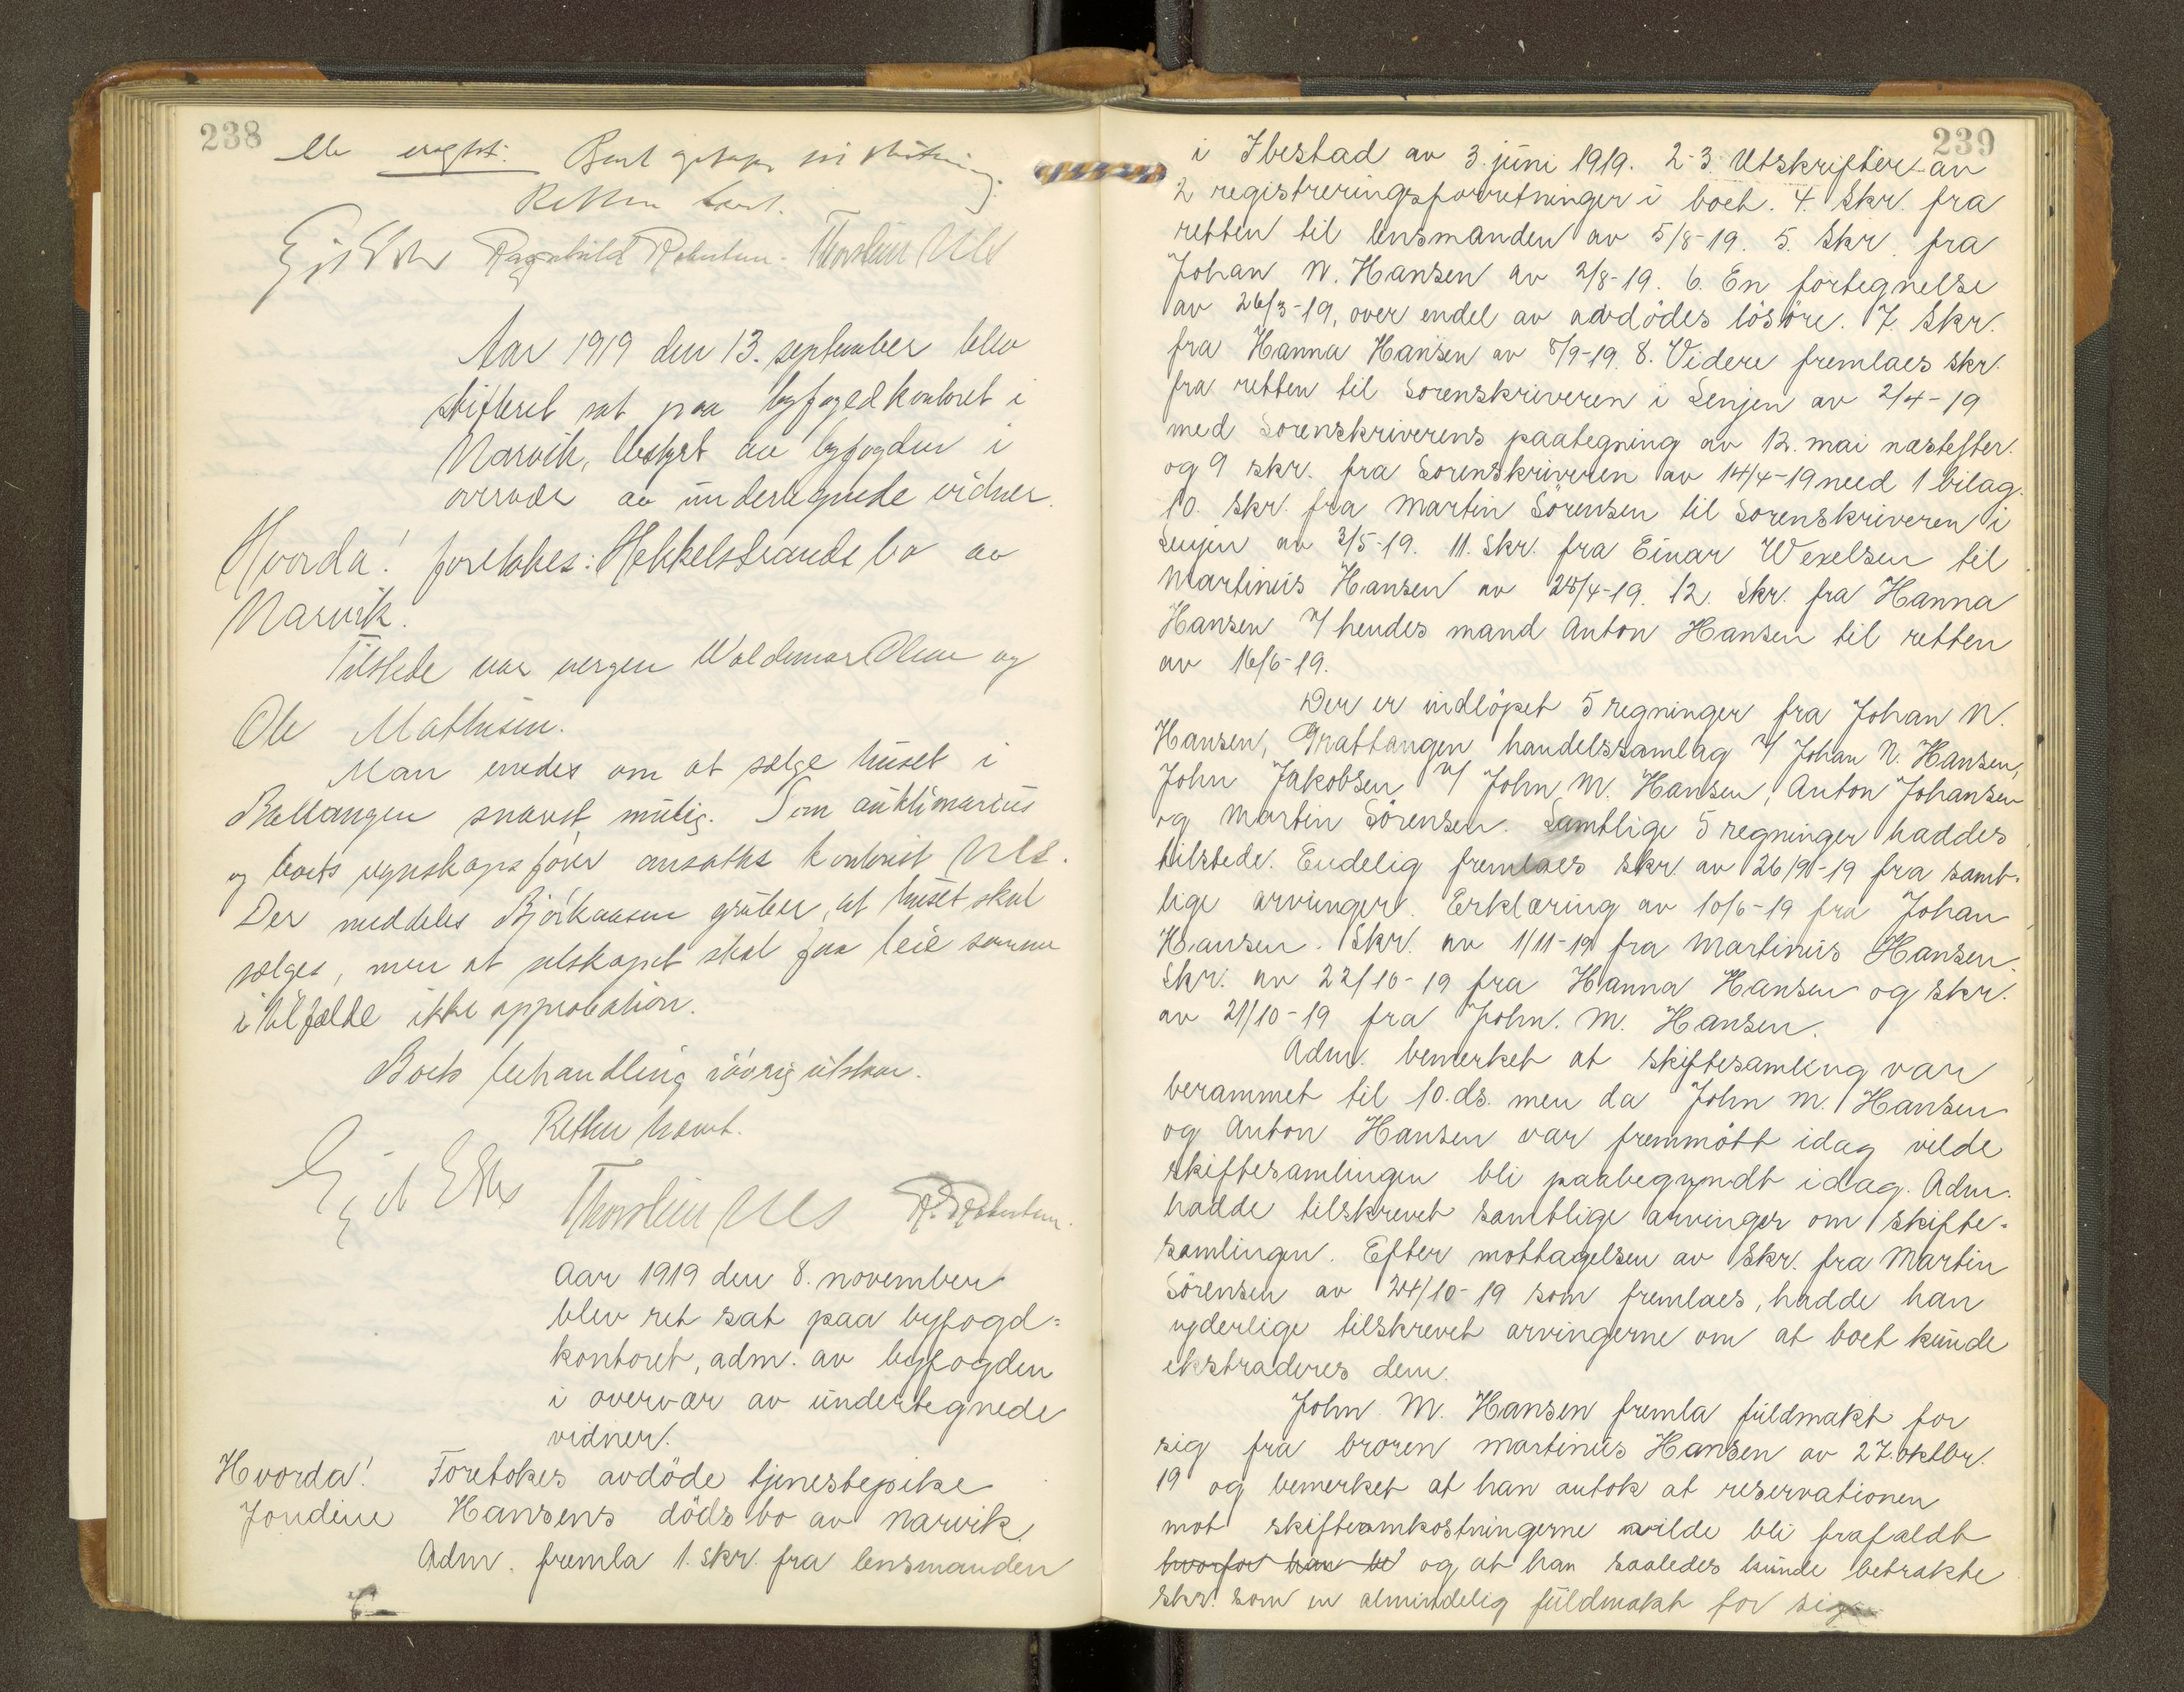 238
Retten hævt.
Ragnhild Robertsen. Thorstein Uls
Aar 1919 den 13. september blev
skifteret sat paa byfogedkontoret i
Narvik, bestyrt av byfogden i
overvær av undertegnede vidner.
Hvorda! foretokes: Hekkelstrands bo av
Narvik.
Tilstede var vergen Waldemar Olsen og
Ole Mathisen.
Man enedes om at sælge huset i
Ballangen snarest mulig. Som auktionarius
og boets regnskapsfører ansattes kontorist Uls.
Der meddeles Bjørkaasen gruber, at huset skal
sælges, men at selskapet skal faa leie samme
i tilfælde ikke approbation.
Boets behandling iøvrig utstaar.
Retten hævet.
Thorstein Uls R. Robertsen.
Aar 1919 den 8. november
blev ret sat paa byfogd=
kontoret, adm. av byfogden
i overvær av undertegnede
vidner.
Hvorda! Foretokes avdöde tjenestepike
Jondine Hansens dödsbo av Narvik.
Adm. fremla 1. skr. fra lensmanden
239
i Ibestad av 3. juni 1919. 2-3. Utskrifter av
2 registreringsforretninger i boet. 4. Skr. fra
retten til lensmanden av 5/8-19. 5. Skr. fra
Johan N. Hansen av 2/8-19. 6. En fortegnelse
av 26/3-19, over endel av avdödes lösöre. 7. Skr.
fra Hanna Hansen av 8/9-19. 8. Videre fremlaes skr.
fra retten til Sorenskriveren i Senjen av 2/4-19
med Sorenskriverens paategning av 12. mai næstefter.
og 9 skr. fra Sorenskriveren av 14/4-19 med 1 bilag.
10. Skr. fra Martin Sörensen til Sorenskriveren i
Senjen av 3/5-19. 11. Skr. fra Einar Wexelsen til
Martinus Hansen av 28/4-19. 12. Skr. fra Hanna
Hansen v/ hendes mand Anton Hansen til retten
av 16/6-19.
Der er indlöpet 5 regninger fra Johan N.
Hansen, Grattangen handelssamlag v/ Johan N. Hansen,
John Jakobsen v/ John M. Hansen, Anton Johansen
og Martin Sörensen. Samtlige 5 regninger haddes
tilstede. Endelig fremlaes skr. av 26/9-19 fra samt-
lige arvinger. Erklæring av 10/6-19 fra Johan
Hansen. Skr. av 1/11-19 fra Martinus Hansen.
Skr. av 22/10-19 fra Hanna Hansen og skr.
av 21/10-19 fra John. M. Hansen.
Adm. bemerket at skiftesamling var
berammet til 10. ds. men da John M. Hansen
og Anton Hansen var fremmött idag vilde
skiftesamlingen bli paabegyndt idag. Adm.
hadde tilskrevet samtlige arvinger om skifte=
samlingen. Efter mottagelsen av Skr. fra Martin
Sörensen av 24/10-19 som fremlaes, hadde han
yderlige tilskrevet arvingerne om at boet kunde
ekstraderes dem.
John M. Hansen fremla fuldmakt for
sig fra broren Martinus Hansen av 27. oktbr.
19 og bemerket at han antok at reservationen
mot skifteomkostningerne vilde bli frafaldt
hvorfor han be og at han saaledes kunde betrakte
skr. som en almindelig fuldmakt for sig